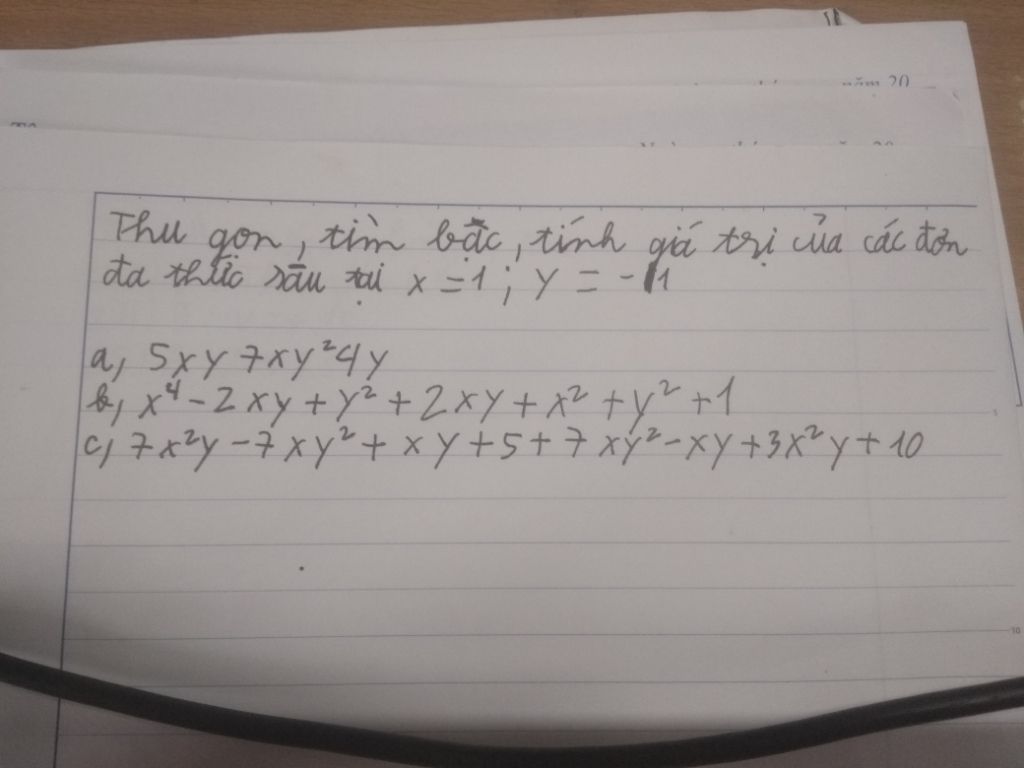 năm 20
Thu gọn, tìm bậc, tính giá trị của các đơn
đa thức sau tại x = 1 ; y = -1
a, 5xy 7xy²4y
b, x⁴ - 2xy + y² + 2xy + x² + y² + 1
c, 7x²y - 7xy² + xy + 5 + 7xy² - xy + 3x²y + 10
5
10